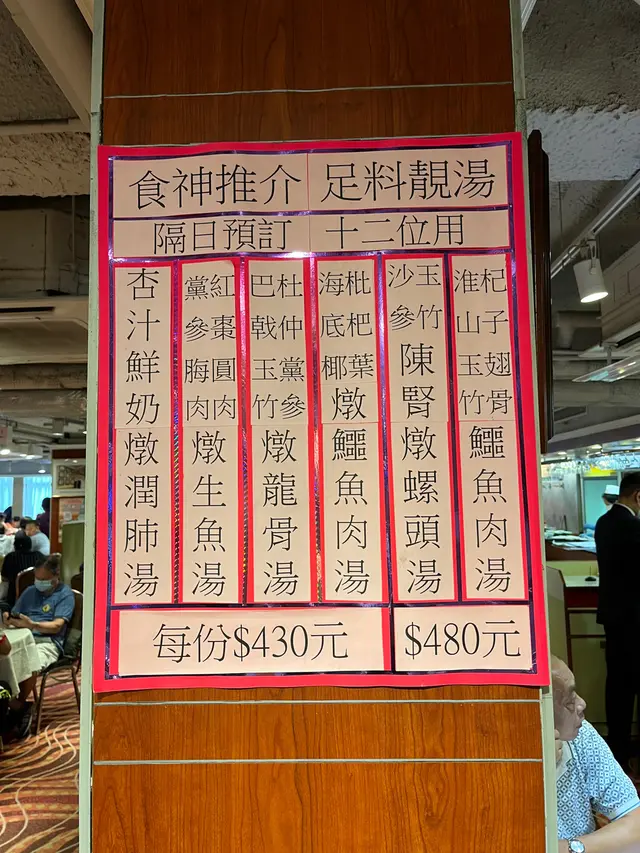 食神推介 足料靚湯
隔日預訂 十二位用
杞子翅骨
淮山玉竹
鱷魚肉湯
玉竹
沙參
陳腎燉螺頭湯
枇杷葉
海底椰
燉鱷魚肉湯
杜仲黨參
巴戟玉竹
燉龍骨湯
紅棗圓肉
黨參胸肉
燉生魚湯
杏汁鮮奶燉潤肺湯
每份$430元
$480元